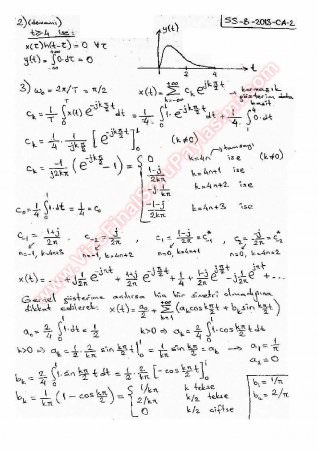 2)(devamı)
SS-8-2013-CA-2
t≥4 ise:
x(τ)h(t-τ)=0 ∀τ
y(t)=∫0·dτ=0
y(t)
t
3) ω₀=2π/T=π/2
x(t)=∑ cₖ e^{jkπ/2 t} → karmaşık
gösterim daha
basit
cₖ = 1/T ∫ x(t) e^{-jkπ/2 t} dt = 1/4 ∫ 1·e^{-jkπ/2 t} dt + 1/4 ∫ 0·dt
cₖ = 1/4 · 1/(-jkπ/2) [e^{-jkπ/2 t}]₀¹ (k≠0)
cₖ = -1/(j2kπ) (e^{-jkπ/2} - 1) = { 0 k=4n → tamsayı ise (k≠0)
(1-j)/(2kπ) k=4n+1 ise
-j·1/(kπ) k=4n+2 ise
(-1-j)/(2kπ) k=4n+3 ise
c₀ = 1/4 ∫₀¹ 1·dt = 1/4 = c₀
c₋₁ = (1+j)/(2π) c₋₂ = j/(2π) , c₁ = (1-j)/(2π) = c₋₁* , c₂ = -j/(2π) = c₋₂*
n=-1, k=4n+3 n=-1, k=4n+2 n=0, k=4n+1 n=0, k=4n+2
x(t) = ... + j/(2π) e^{-jπt} + (1+j)/(2π) e^{-jπ/2 t} + 1/4 + (1-j)/(2π) e^{jπ/2 t} - j/(2π) e^{jπt} + ...
Gerçel gösterime
dikkat edilerek: x(t) = a₀/2 + ∑ (aₖ cos kπ/2 t + bₖ sin kπ/2 t)
a₀ = 2/4 ∫₀¹ 1·dt = 1/2 k>0 ⇒ aₖ = 2/4 ∫₀¹ 1·cos kπ/2 t dt
k>0 ⇒ aₖ = 1/2 · 2/(kπ) sin kπ/2 t |₀¹ = 1/(kπ) sin kπ/2 = aₖ → a₁ = 1/π
a₂ = 0
bₖ = 2/4 ∫₀¹ 1·sin kπ/2 t dt = 1/2 · 2/(kπ) [-cos kπ/2 t]₀¹
bₖ = 1/(kπ) (1 - cos kπ/2) = { 1/kπ k tekse
2/kπ k/2 tekse
0 k/2 çiftse
b₁ = 1/π
b₂ = 2/π